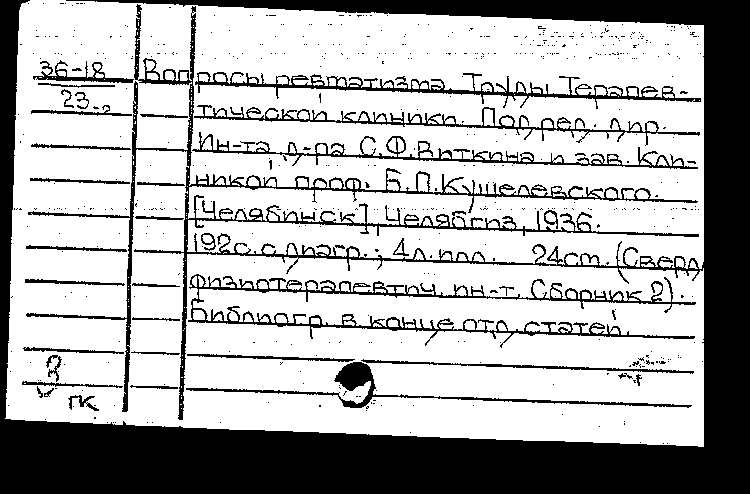 36-18
23-2
Вопросы ревматизма. Труды Терапев-
тической клиники. Под ред. дир.
Ин-та д-ра С.Ф.Виткина и зав. Кли-
никой проф. Б.П.Кушелевского.
[Челябинск], Челябгиз, 1936.
192с. с диагр.; 4л. илл. 24см. (Сверд.
физиотерапевтич. ин-т. Сборник 2).
Библиогр. в конце отд. статей.
ГК